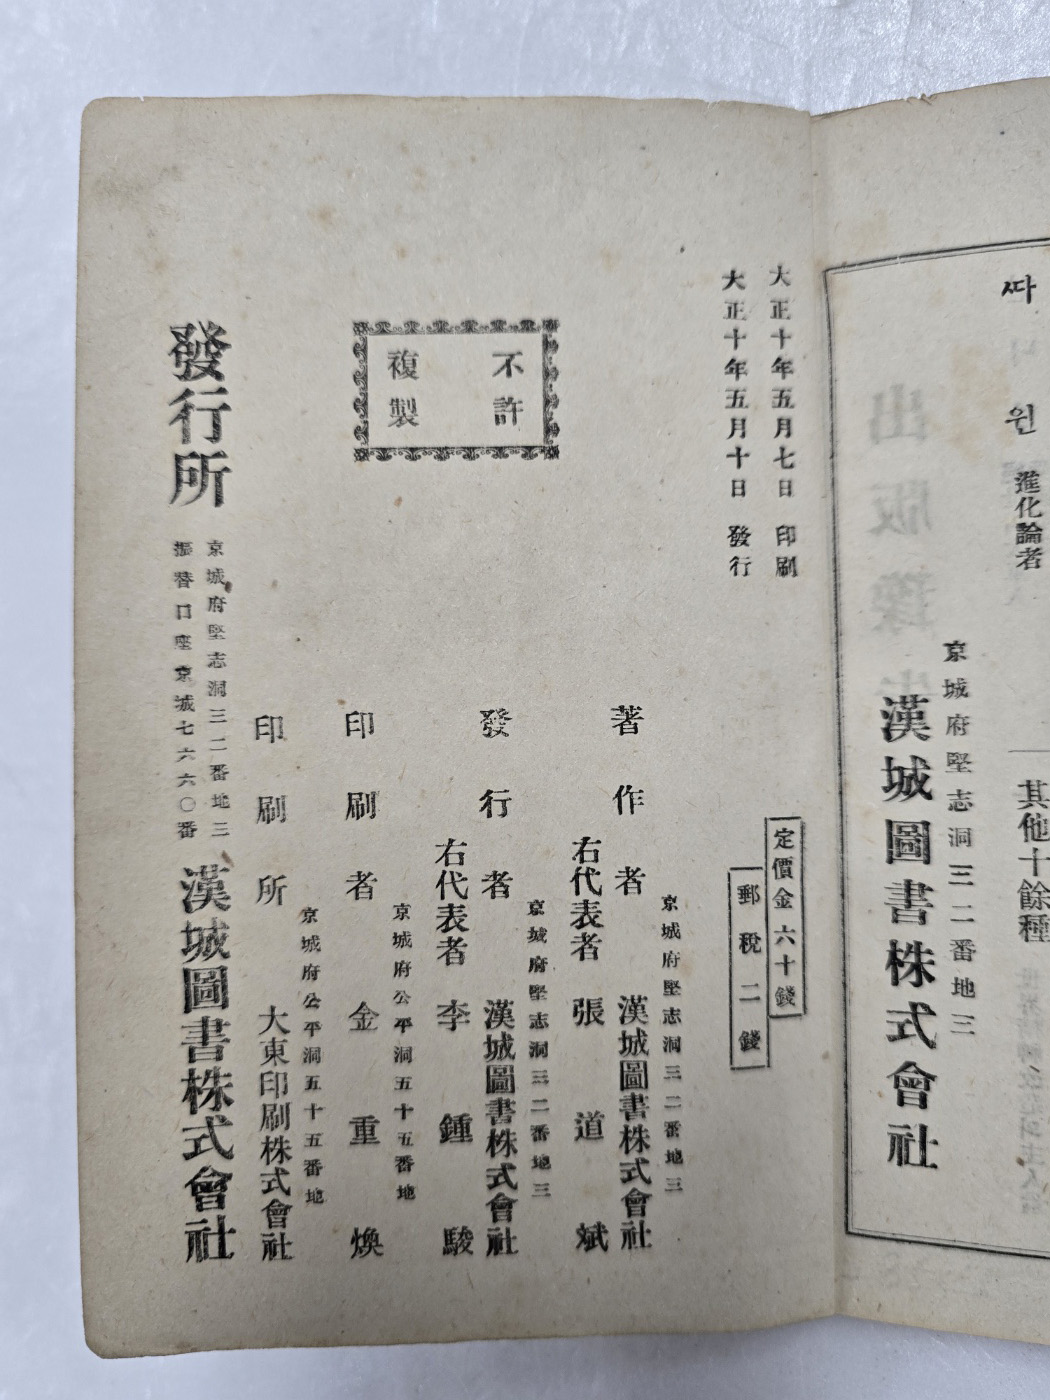 싸윈 進化論者
其他十餘種
京城府堅志洞三二番地三
漢城圖書株式會社
大正十年五月七日 印刷
大正十年五月十日 發行
定價金六十錢
郵稅二錢
不許
複製
京城府堅志洞三二番地三
著作者 漢城圖書株式會社
右代表者 張道斌
京城府堅志洞三二番地三
發行者 漢城圖書株式會社
右代表者 李鍾駿
京城府公平洞五十五番地
印刷者 金重煥
京城府公平洞五十五番地
印刷所 大東印刷株式會社
發行所
京城府堅志洞三二番地三
振替口座京城七六六〇番
漢城圖書株式會社